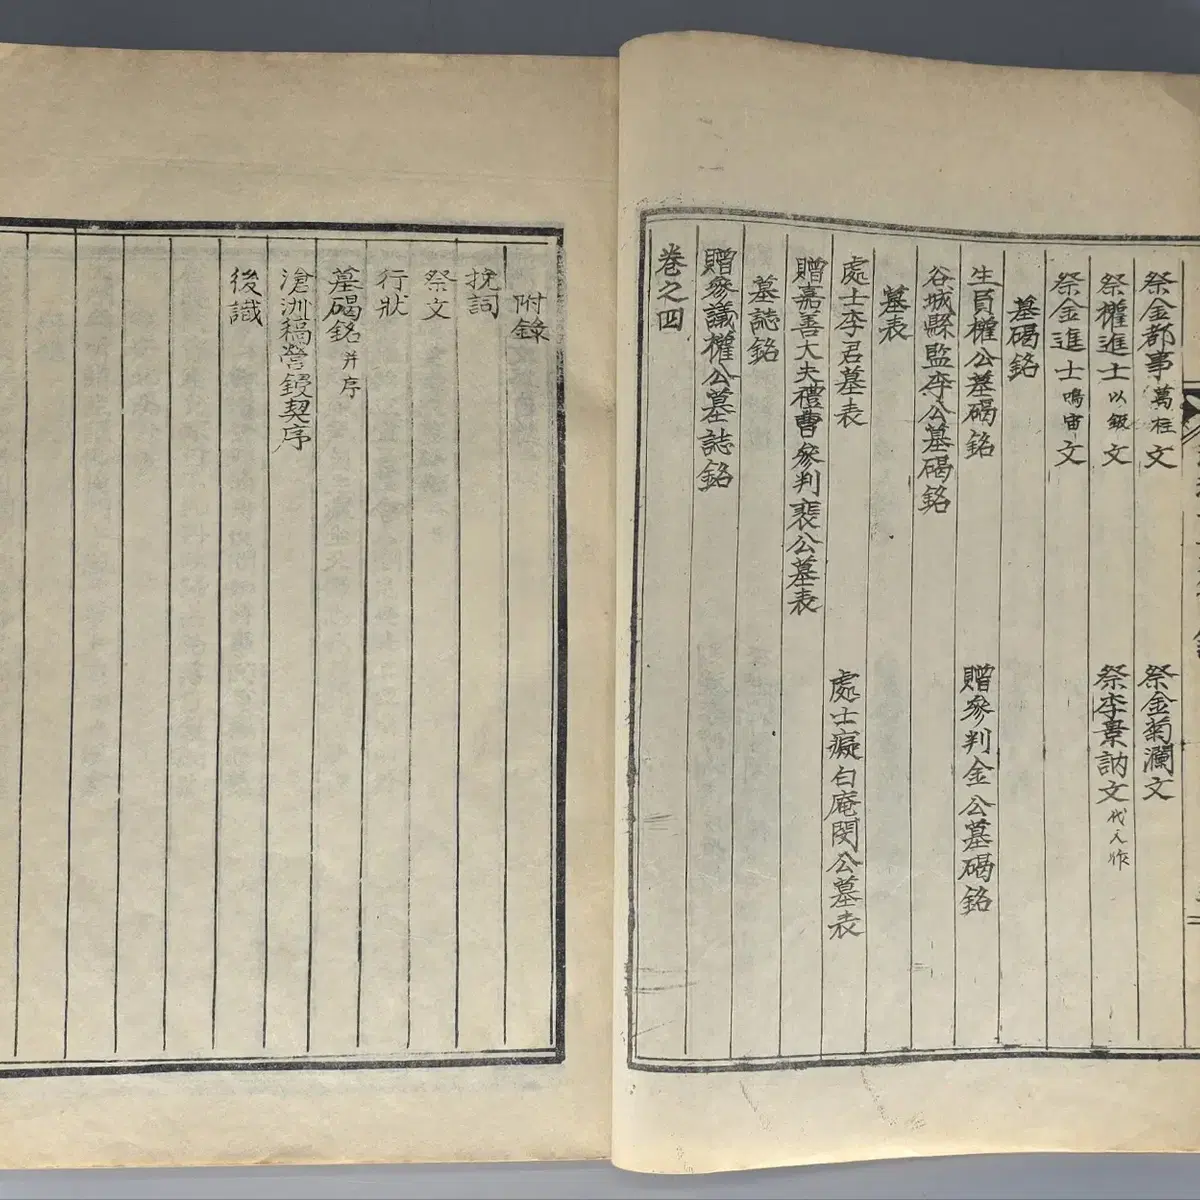 祭金都事萬柱文 祭金菊瀾文
祭權進士以鈒文 祭李景訥文代人作
祭金進士鳴宙文
墓碣銘
生員權公墓碣銘 贈參判金公墓碣銘
谷城縣監李公墓碣銘
墓表
處士李君墓表 處士癡白庵閔公墓表
贈嘉善大夫禮曹參判裴公墓表
墓誌銘
贈參議權公墓誌銘
卷之四
附錄
挽詞
祭文
行狀
墓碣銘并序
滄洲稿營鋟契序
後識